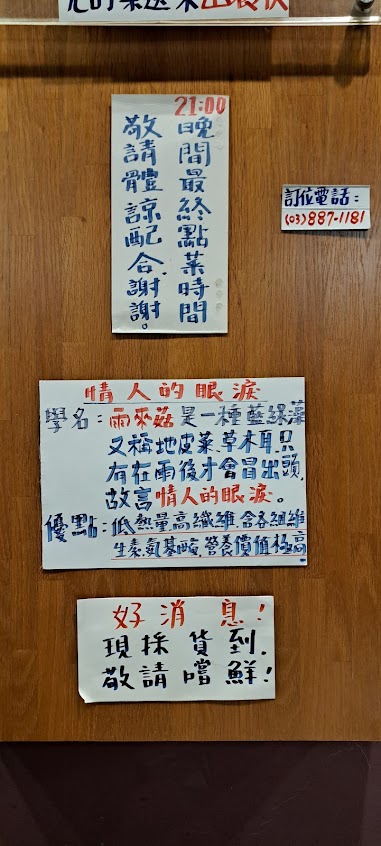 出餐快
晚間最終點菜時間21:00
敬請體諒配合.謝謝。
訂位電話：
(03)887-1181
情人的眼淚
學名：雨來菇是一種藍綠藻
又稱地皮菜.草木耳.只
有在雨後才會冒出頭.
故言情人的眼淚。
優點：低熱量高纖維.含各細維
生素.氨基酸.營養價值極高
好消息！
現採貨到.
敬請嚐鮮！